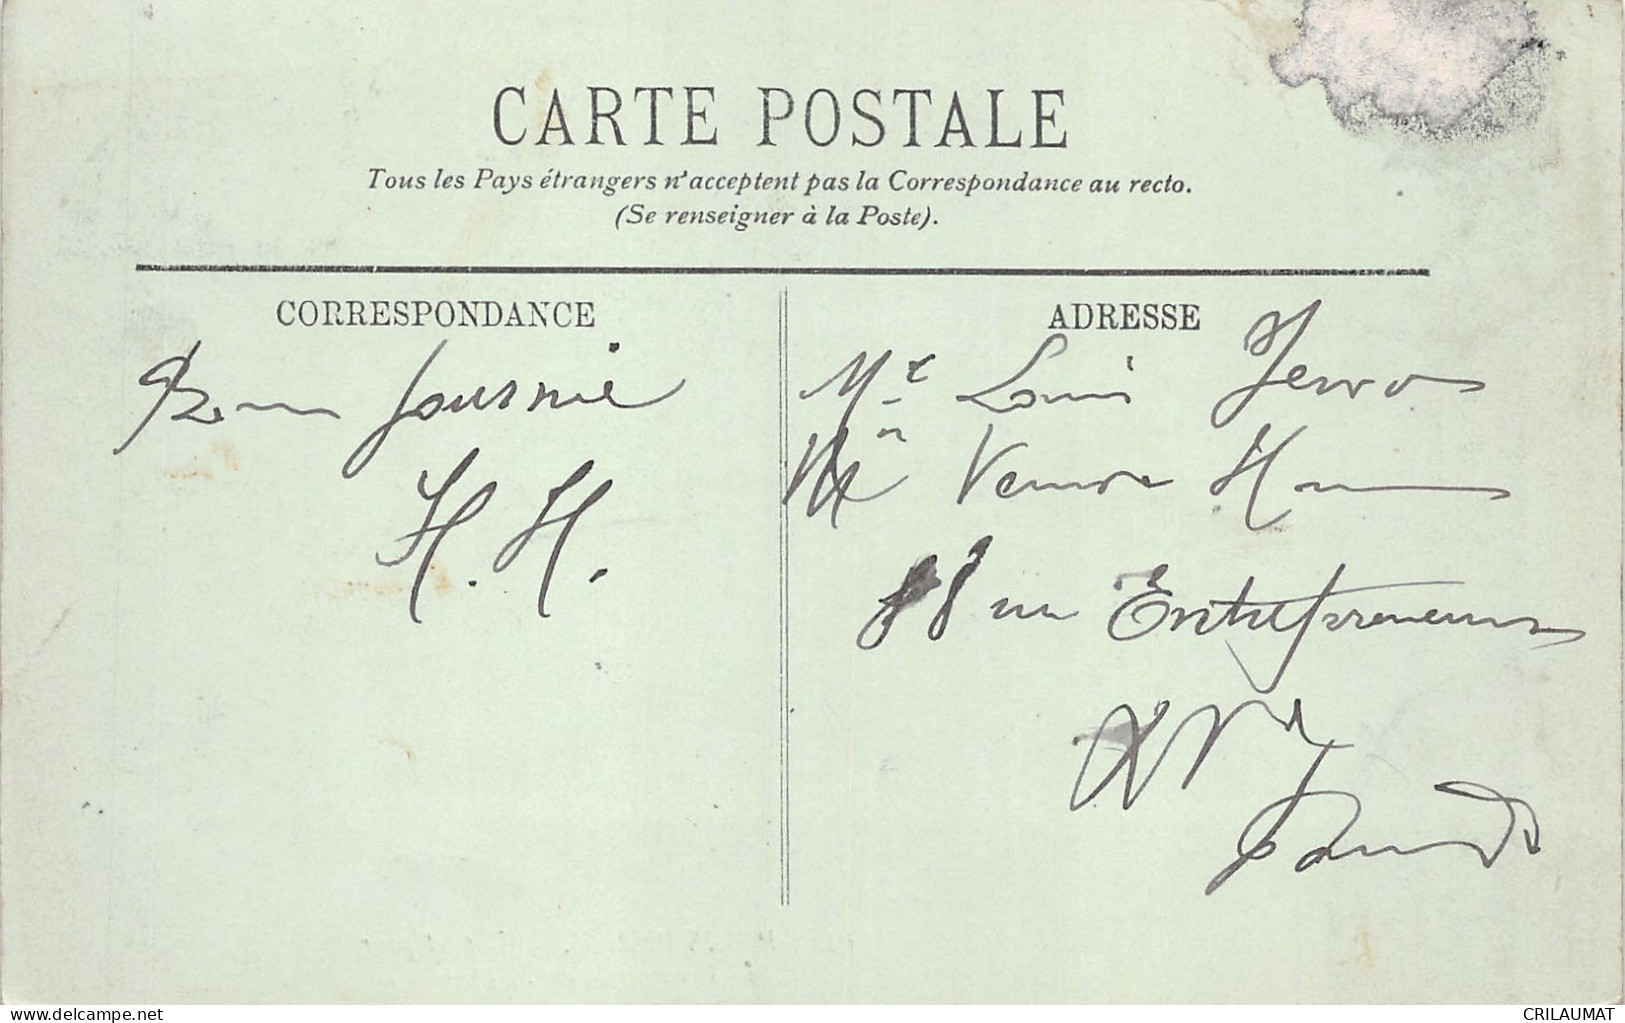 CARTE POSTALE
Tous les Pays étrangers n'acceptent pas la Correspondance au recto.
(Se renseigner à la Poste).
CORRESPONDANCE
Bonne journée
H. H.
ADRESSE
Mr Louis
Mon
88 rue Entrepreneurs
XVe
Paris
www.delcampe.net
CRILAUMAT